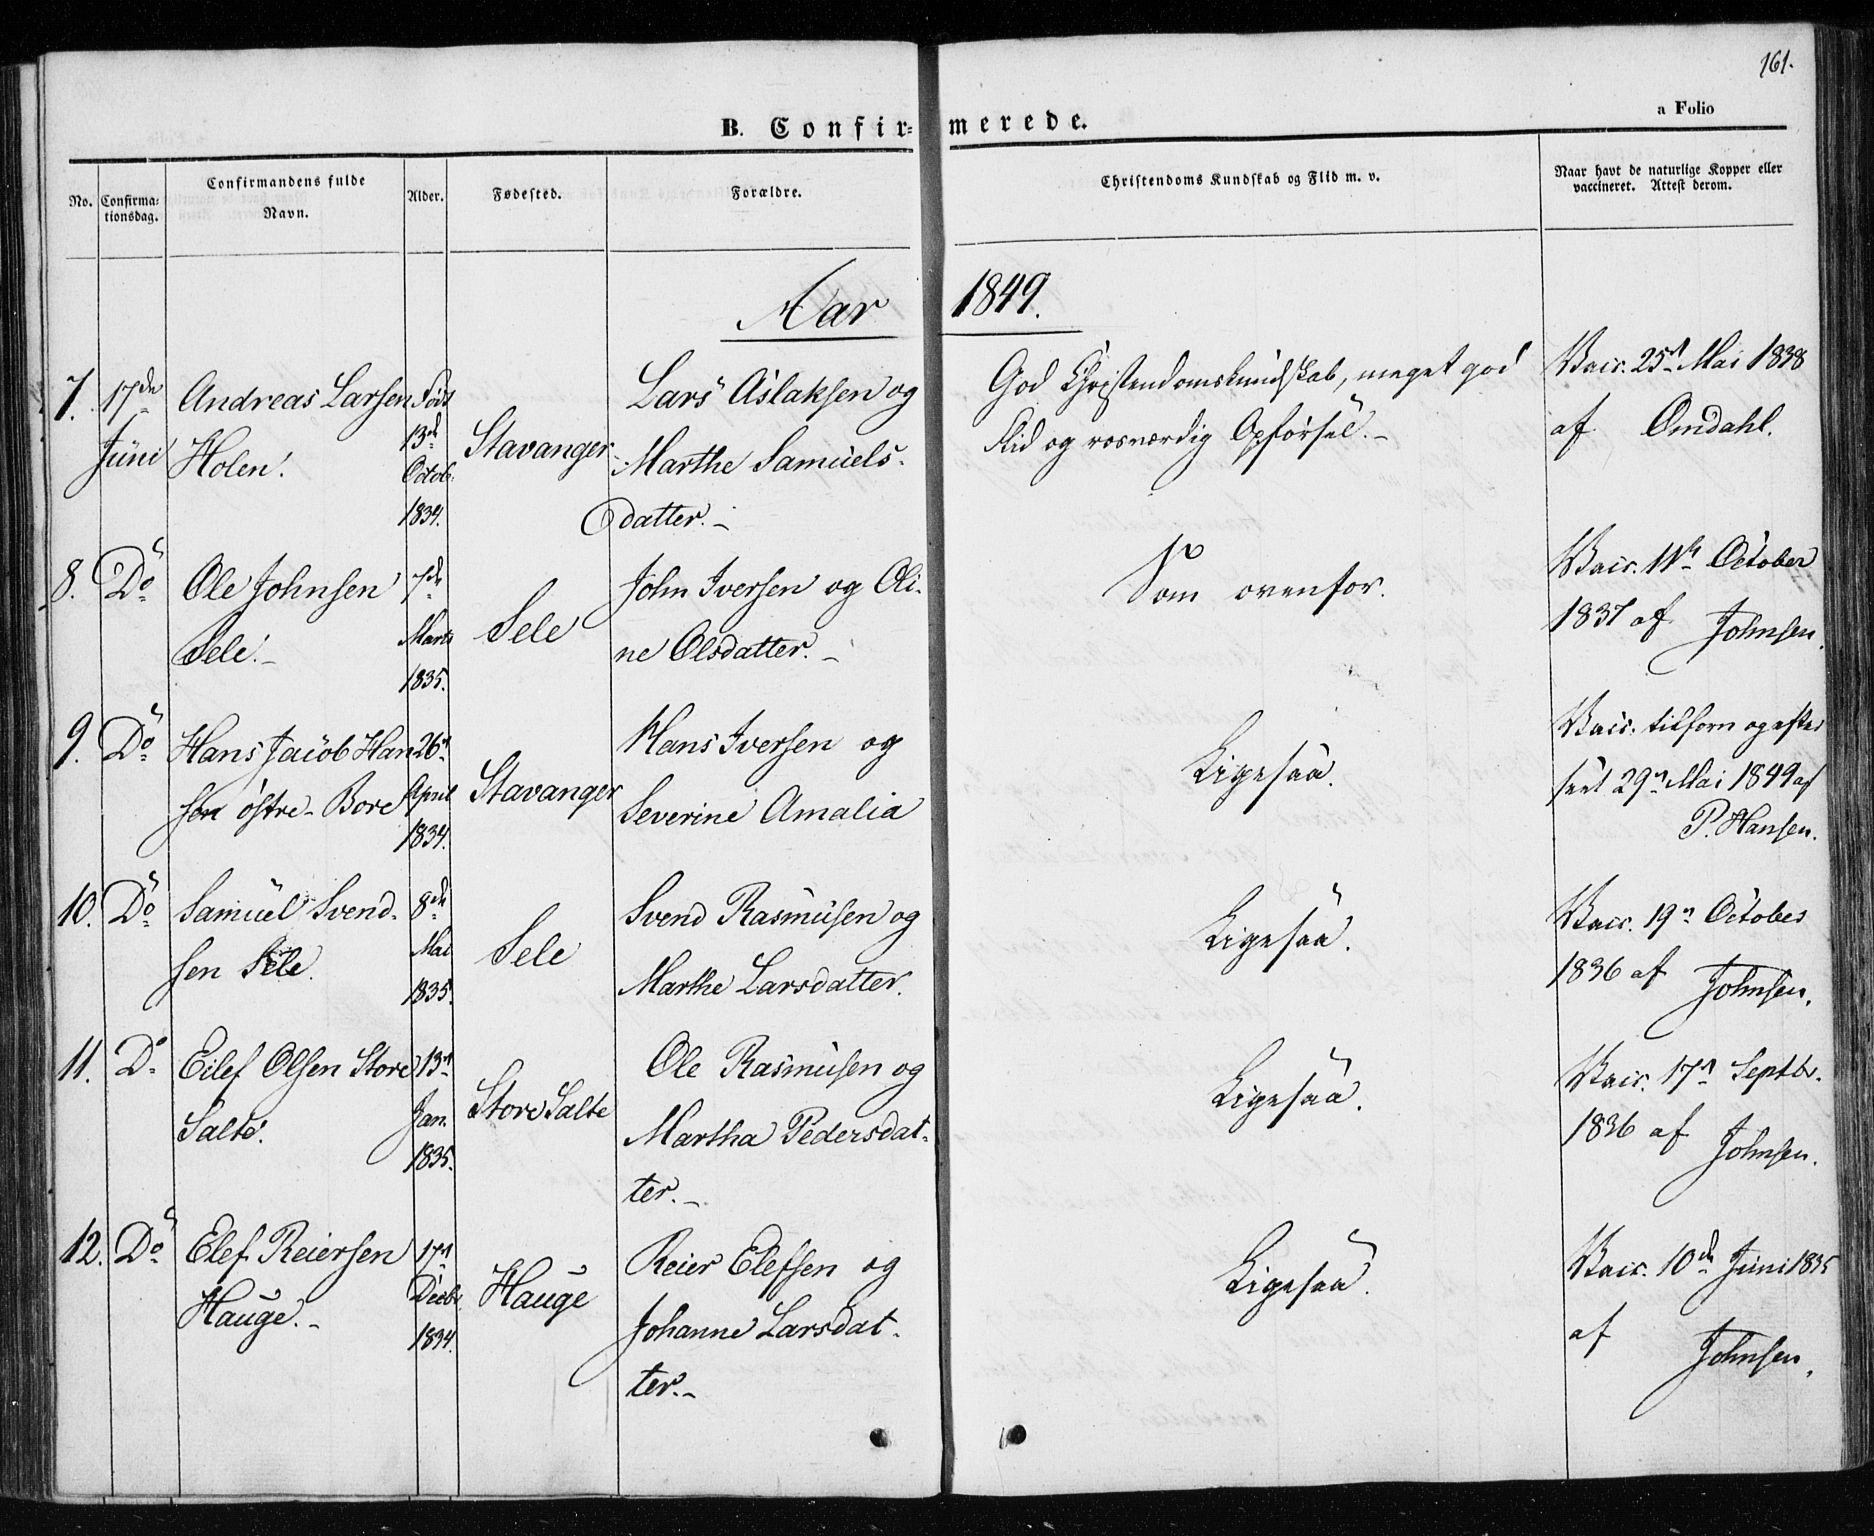 161.
a Folio
B. Confir= merede.
No.
Confirma-
tionsdag.
Confirmandens fulde
Navn.
Alder.
Fødested.
Forældre.
Christendoms Kundskab og Flid m. v.
Naar havt de naturlige Kopper eller
vaccineret. Attest derom.
Aar 1849.
7.
17de
Juni
Andreas Larsen
Holen.
Født
13de
Octob.
1834.
Stavanger
Lars Aslaksen og
Marthe Samuels-
datter.-
God Christendomskundskab, meget god
Flid og rosværdig Opførsel.-
Vacc. 25n Mai 1838
af Omdahl.
8.
Do
Ole Johnsen
Sele.-
7de
Marts
1835.
Sele
John Iversen og Oli-
ne Olsdatter.-
Som ovenfor.
Vacc. 11te October
1837 af Johnsen.
9.
Do
Hans Jacob Han
sen østre-Bore
26n
April
1834.
Stavanger
Hans Iversen og
Severine Amalia
Ligesaa.
Vacc. tilforn og efter
seet 29n Mai 1849 af
P. Hansen.
10.
Do
Samuel Svend-
sen Sele.
8de
Mai
1835.
Sele
Svend Rasmusen og
Marthe Larsdatter.
Ligesaa.
Vacc. 19n October
1836 af Johnsen.
11.
Do
Eilef Olsen Store
Salte.
13n
Jan.
1835.
Store Salte
Ole Rasmusen og
Martha Pedersdat-
ter.-
Ligesaa.
Vacc. 17n Septbr.
1836 af Johnsen.
12.
Do
Elef Reiersen
Hauge.-
17n
Decbr
1834.
Hauge
Reier Elefsen og
Johanne Larsdat-
ter.-
Ligesaa.
Vacc. 10de Juni 1835
af Johnsen.